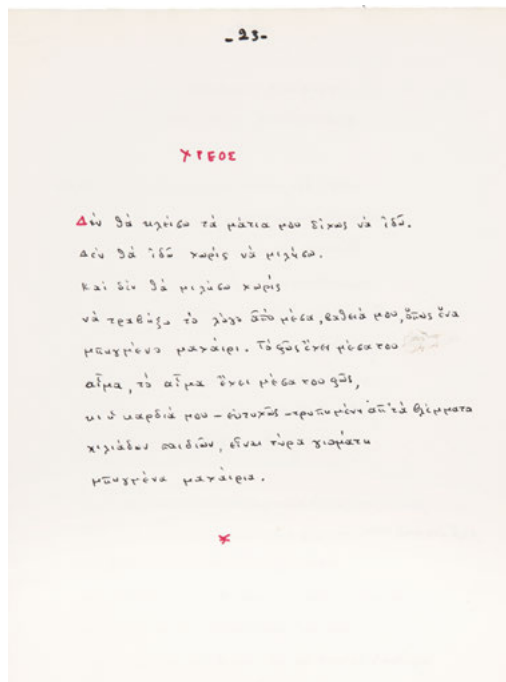 - 23 -
ΧΡΕΟΣ
Δὲν θὰ κλείσω τὰ μάτια μου δίχως νὰ ἰδῶ.
Δὲν θὰ ἰδῶ χωρὶς νὰ μιλήσω.
Καὶ δὲν θὰ μιλήσω χωρὶς
νὰ τραβήξω τὸ λόγο ἀπὸ μέσα, βαθειά μου, ὅπως ἕνα
μπηγμένο μαχαίρι. Τὸ φῶς ἔχει μέσα του
αἷμα, τὸ αἷμα ἔχει μέσα του φῶς,
κι ἡ καρδιά μου – εὐτυχῶς – τρυπημένη ἀπ' τὰ βλέμματα
χιλιάδων παιδιῶν, εἶναι τώρα γιομάτη
μπηγμένα μαχαίρια.
*